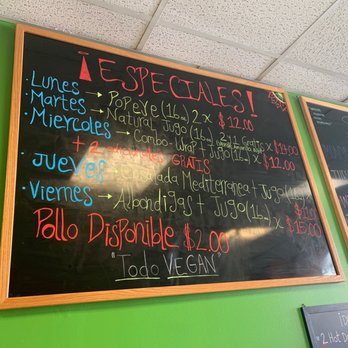 ¡ESPECIALES!
· Lunes → Popeye (16oz) 2 x $12.00
Martes → Natural Jugo (16oz) 2y1 Gratis x $14.00
· Miercoles → Combo-Wrap + Jugo (16oz) x $12.00
+ 2 GRATIS
· JUEVES Mediterranea + Jugo (16oz)
· Viernes → Albondigas + Jugo (16oz) x $15.00
Pollo Disponible $2.00
"Todo VEGAN"
2 Hot D